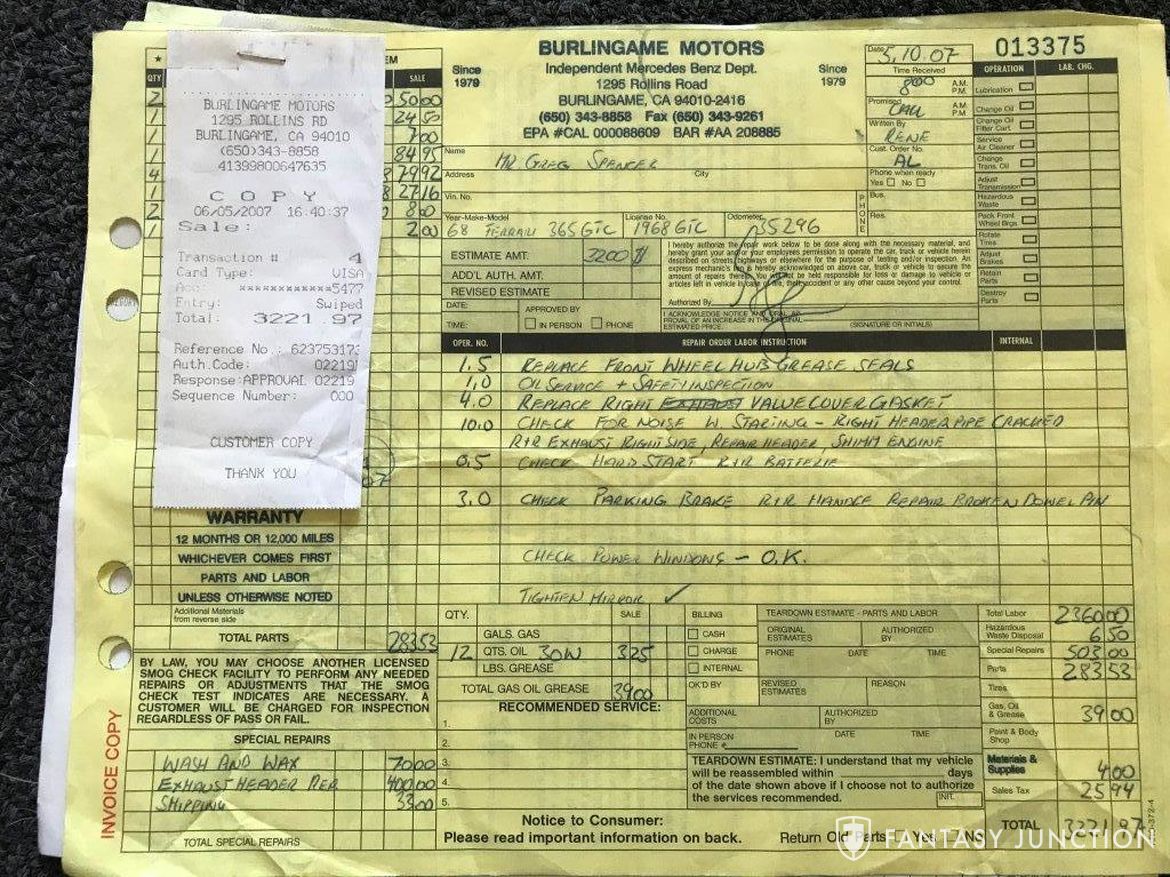 BURLINGAME MOTORS
Independent Mercedes Benz Dept.
1295 Rollins Road
BURLINGAME, CA 94010-2416
(650) 343-8858 Fax (650) 343-9261
EPA #CAL 000088609 BAR #AA 208885
Since 1979
Since 1979
Date 5.10.07
Time Received 800 A.M. P.M.
Promised CALL A.M. P.M.
Written By RENE
Cust. Order No. AL
Phone when ready
Yes No
013375
OPERATION LAB. CHG.
Lubrication
Change Oil
Change Oil Filter Cart.
Service Air Cleaner
Change Trans. Oil
Adjust Transmission
Hazardous Waste
Pack Front Wheel Brgs.
Rotate Tires
Adjust Brakes
Retain Parts
Destroy Parts
QTY SALE
2 5000
1 2450
1 700
1 8495
4 7992
1 2716
2 800
1 200
BURLINGAME MOTORS
1295 ROLLINS RD
BURLINGAME, CA 94010
(650)343-8858
41399800647635
COPY
06/05/2007 16:40:37
Sale:
Transaction # 4
Card Type: VISA
Acc: ************5477
Entry: Swiped
Total: 3221.97
Reference No.: 623753173
Auth.Code: 02219
Response: APPROVAL 02219
Sequence Number: 000
CUSTOMER COPY
THANK YOU
Name Mr GREG SPENCER
Address City
Vin. No.
PHONE Bus. Res.
Year-Make-Model 68 FERRARI 365 GTC License No. 1968 GTC Odometer 35296
ESTIMATE AMT. 3200 $
ADD'L AUTH. AMT.
REVISED ESTIMATE
DATE: APPROVED BY
TIME: IN PERSON PHONE
I hereby authorize the repair work below to be done along with the necessary material, and
hereby grant your and/or your employees permission to operate the car, truck or vehicle herein
described on streets, highways or elsewhere for the purpose of testing and/or inspection. An
express mechanic's lien is hereby acknowledged on above car, truck or vehicle to secure the
amount of repairs thereto. You will not be held responsible for loss or damage to vehicle or
articles left in vehicle in case of fire, theft, accident or any other cause beyond your control.
Authorized By
I ACKNOWLEDGE NOTICE AND ORAL APPROVAL OF AN INCREASE IN THE ORIGINAL ESTIMATED PRICE.
(SIGNATURE OR INITIALS)
OPER. NO. REPAIR ORDER LABOR INSTRUCTION INTERNAL
1.5 REPLACE FRONT WHEEL HUB GREASE SEALS
1.0 OIL SERVICE + SAFETY INSPECTION
4.0 REPLACE RIGHT EXHAUST VALVE COVER GASKET
10.0 CHECK FOR NOISE W. STARTING - RIGHT HEADER PIPE CRACKED
R+R EXHAUST RIGHT SIDE, REPAIR HEADER, SHIMM ENGINE
0.5 CHECK HARD START R+R BATTERIE
3.0 CHECK PARKING BRAKE R+R HANDLE REPAIR BROKEN DOWEL PIN
CHECK POWER WINDOWS - O.K.
TIGHTEN MIRROR ✓
WARRANTY
12 MONTHS OR 12,000 MILES
WHICHEVER COMES FIRST
PARTS AND LABOR
UNLESS OTHERWISE NOTED
Additional Materials from reverse side
TOTAL PARTS 28353
BY LAW, YOU MAY CHOOSE ANOTHER LICENSED
SMOG CHECK FACILITY TO PERFORM ANY NEEDED
REPAIRS OR ADJUSTMENTS THAT THE SMOG
CHECK TEST INDICATES ARE NECESSARY. A
CUSTOMER WILL BE CHARGED FOR INSPECTION
REGARDLESS OF PASS OR FAIL.
SPECIAL REPAIRS
WASH AND WAX 7000
EXHAUST HEADER REP 40000
SHIPPING 3300
TOTAL SPECIAL REPAIRS
INVOICE COPY
QTY. SALE
GALS. GAS
12 QTS. OIL 30W 325
LBS. GREASE
TOTAL GAS OIL GREASE 3900
RECOMMENDED SERVICE:
1.
2.
3.
4.
5.
BILLING
CASH
CHARGE
INTERNAL
OK'D BY
TEARDOWN ESTIMATE - PARTS AND LABOR
ORIGINAL ESTIMATES AUTHORIZED BY
PHONE DATE TIME
REVISED ESTIMATES REASON
ADDITIONAL COSTS AUTHORIZED BY
IN PERSON PHONE # DATE TIME
TEARDOWN ESTIMATE: I understand that my vehicle
will be reassembled within days
of the date shown above if I choose not to authorize
the services recommended. INIT.
Total Labor 236000
Hazardous Waste Disposal 6.50
Special Repairs 50300
Parts 28353
Tires
Gas, Oil & Grease 3900
Paint & Body Shop
Materials & Supplies 4.00
Sales Tax 2594
TOTAL 3221 97
Notice to Consumer:
Please read important information on back.
Return Old Parts Yes No
FANTASY JUNCTION